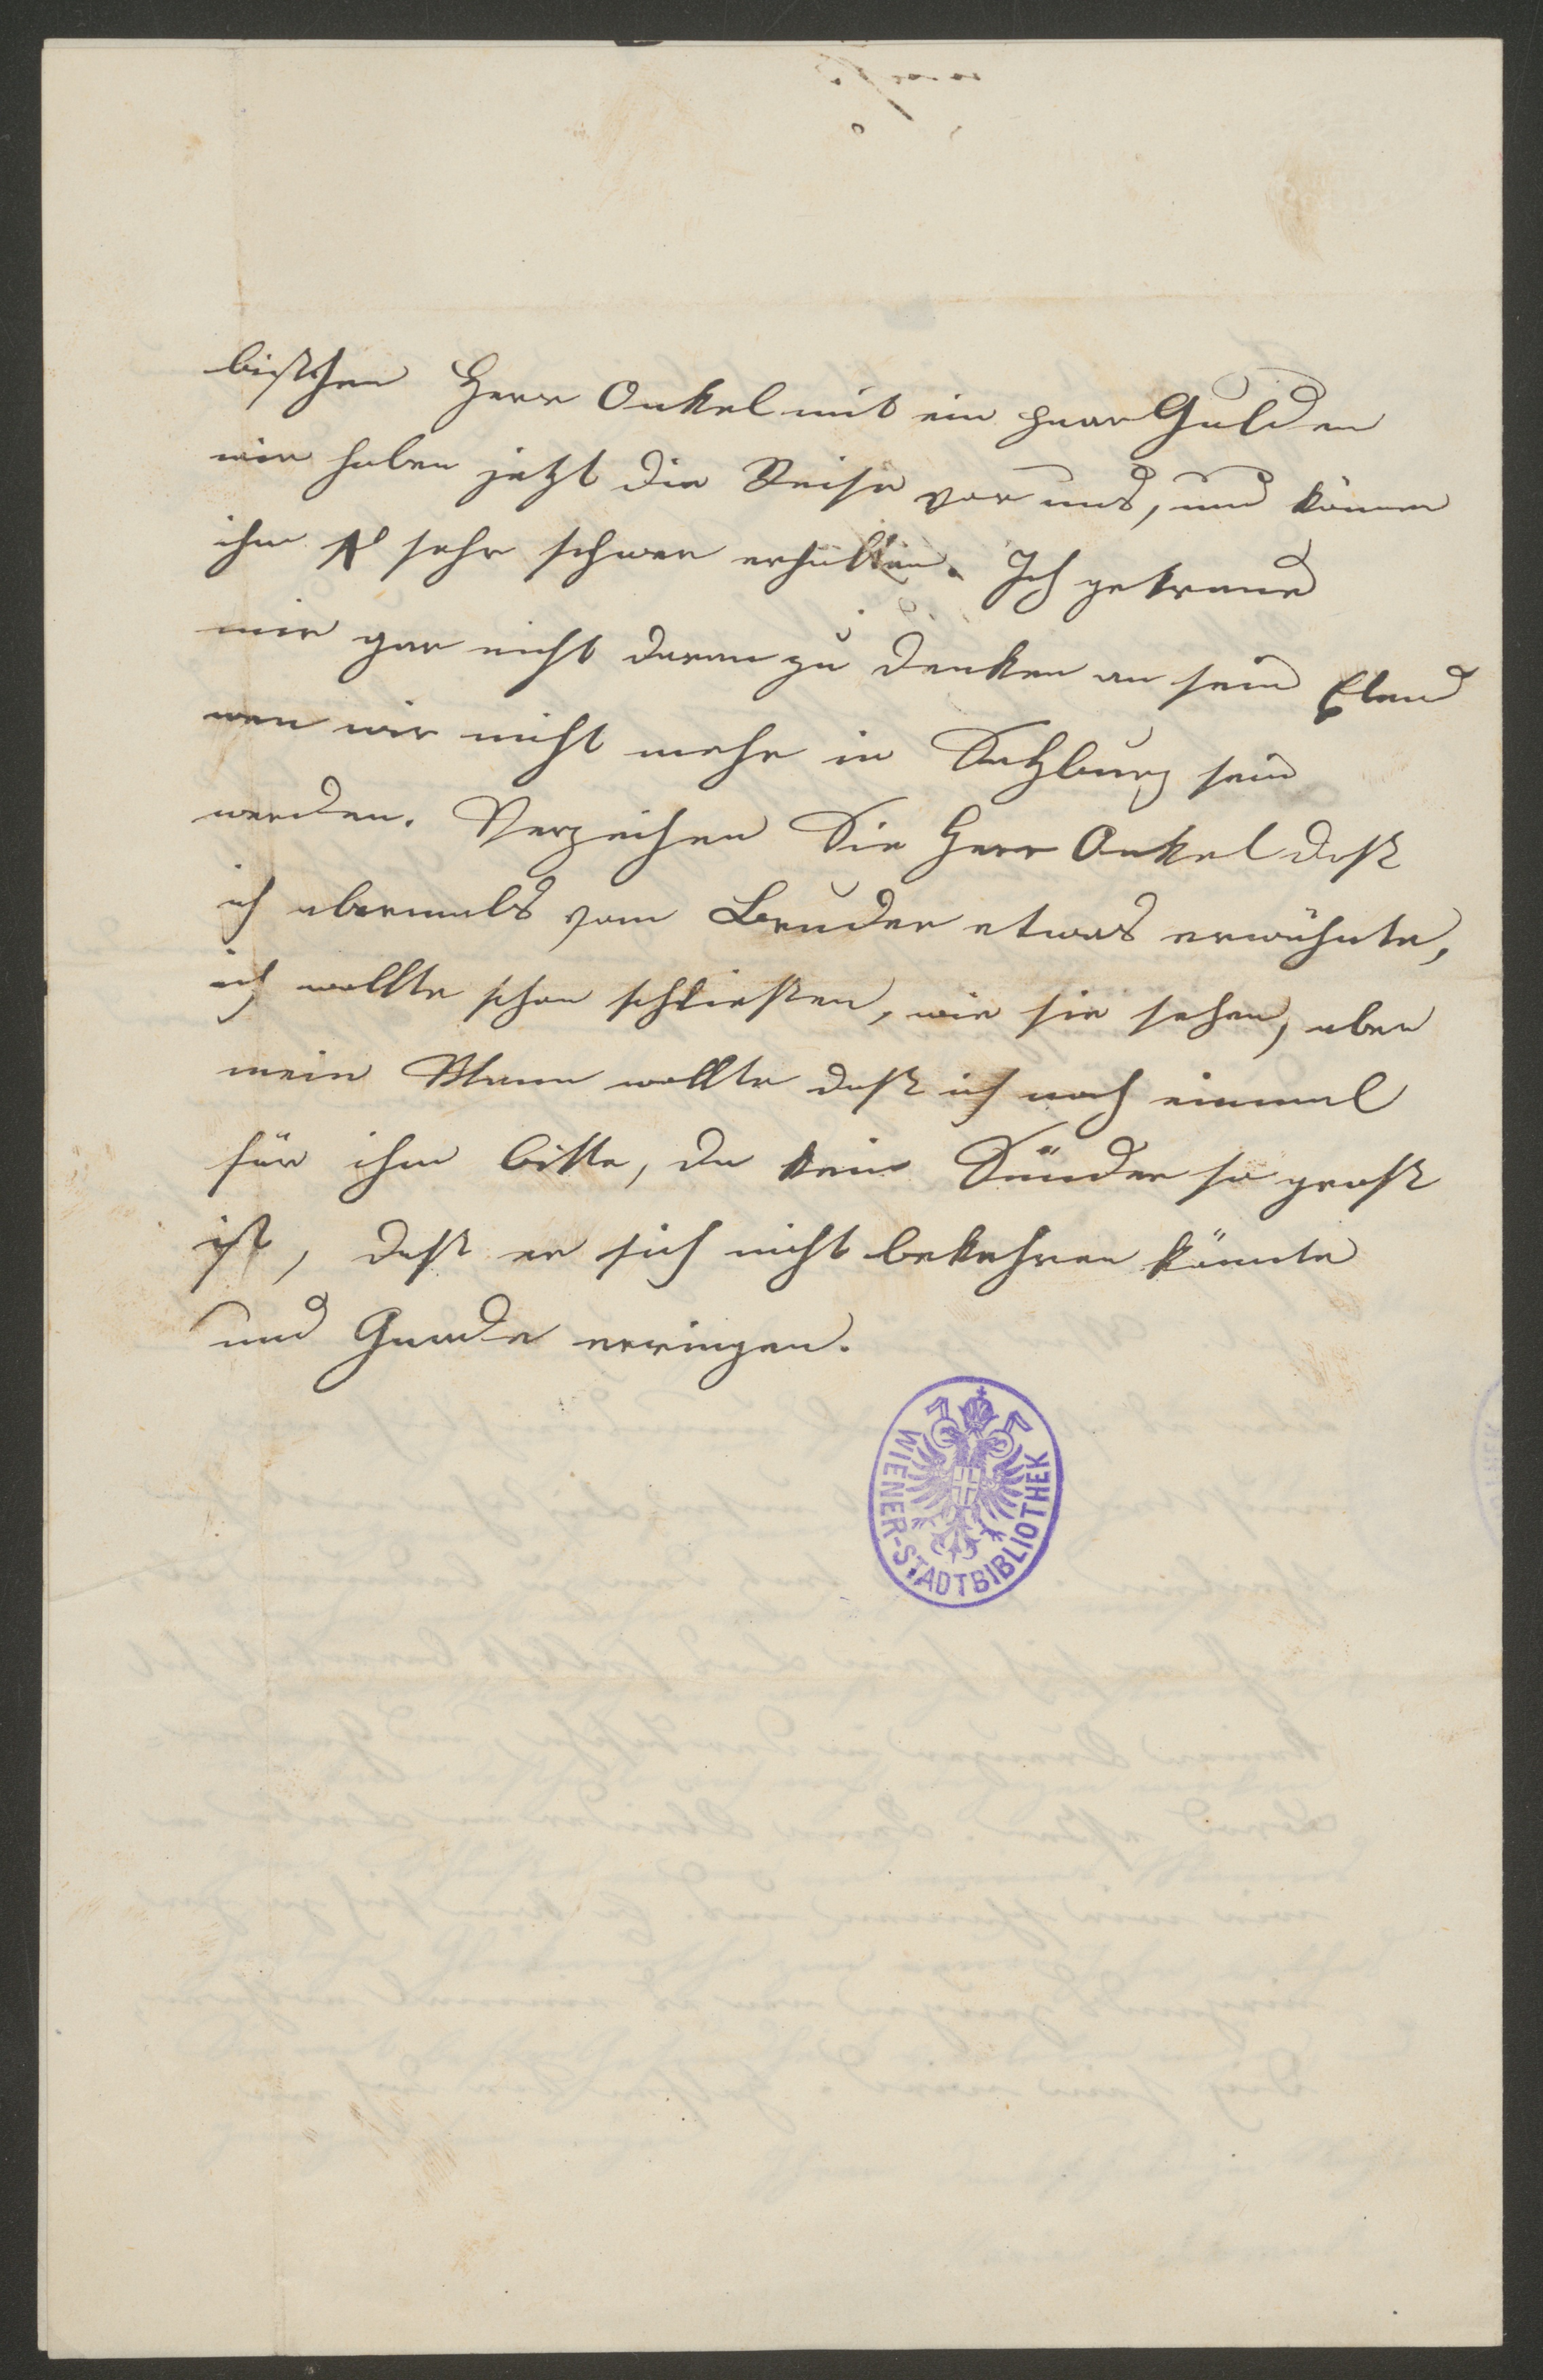 bißchen Herr Onkel mit ein paar Gulden
wir haben jetzt die Reise vor uns, und können
ihm sehr schwer erhalten. Ich getraue
mir gar nicht daran zu denken an sein Elend
wen wir nicht mehr in Salzburg sein
werden. Verzeihen Sie Herr Onkel daß
ich abermals vom Bruder etwas erwähnte,
ich wollte schon schließen, wie sie sehen, aber
mein Mann wollte daß ich noch einmal
für ihm bitte, da kein Sünder so groß
ist, daß er sich nicht bekehren könnte
und Gnade erringen.
WIENER-STADTBIBLIOTHEK